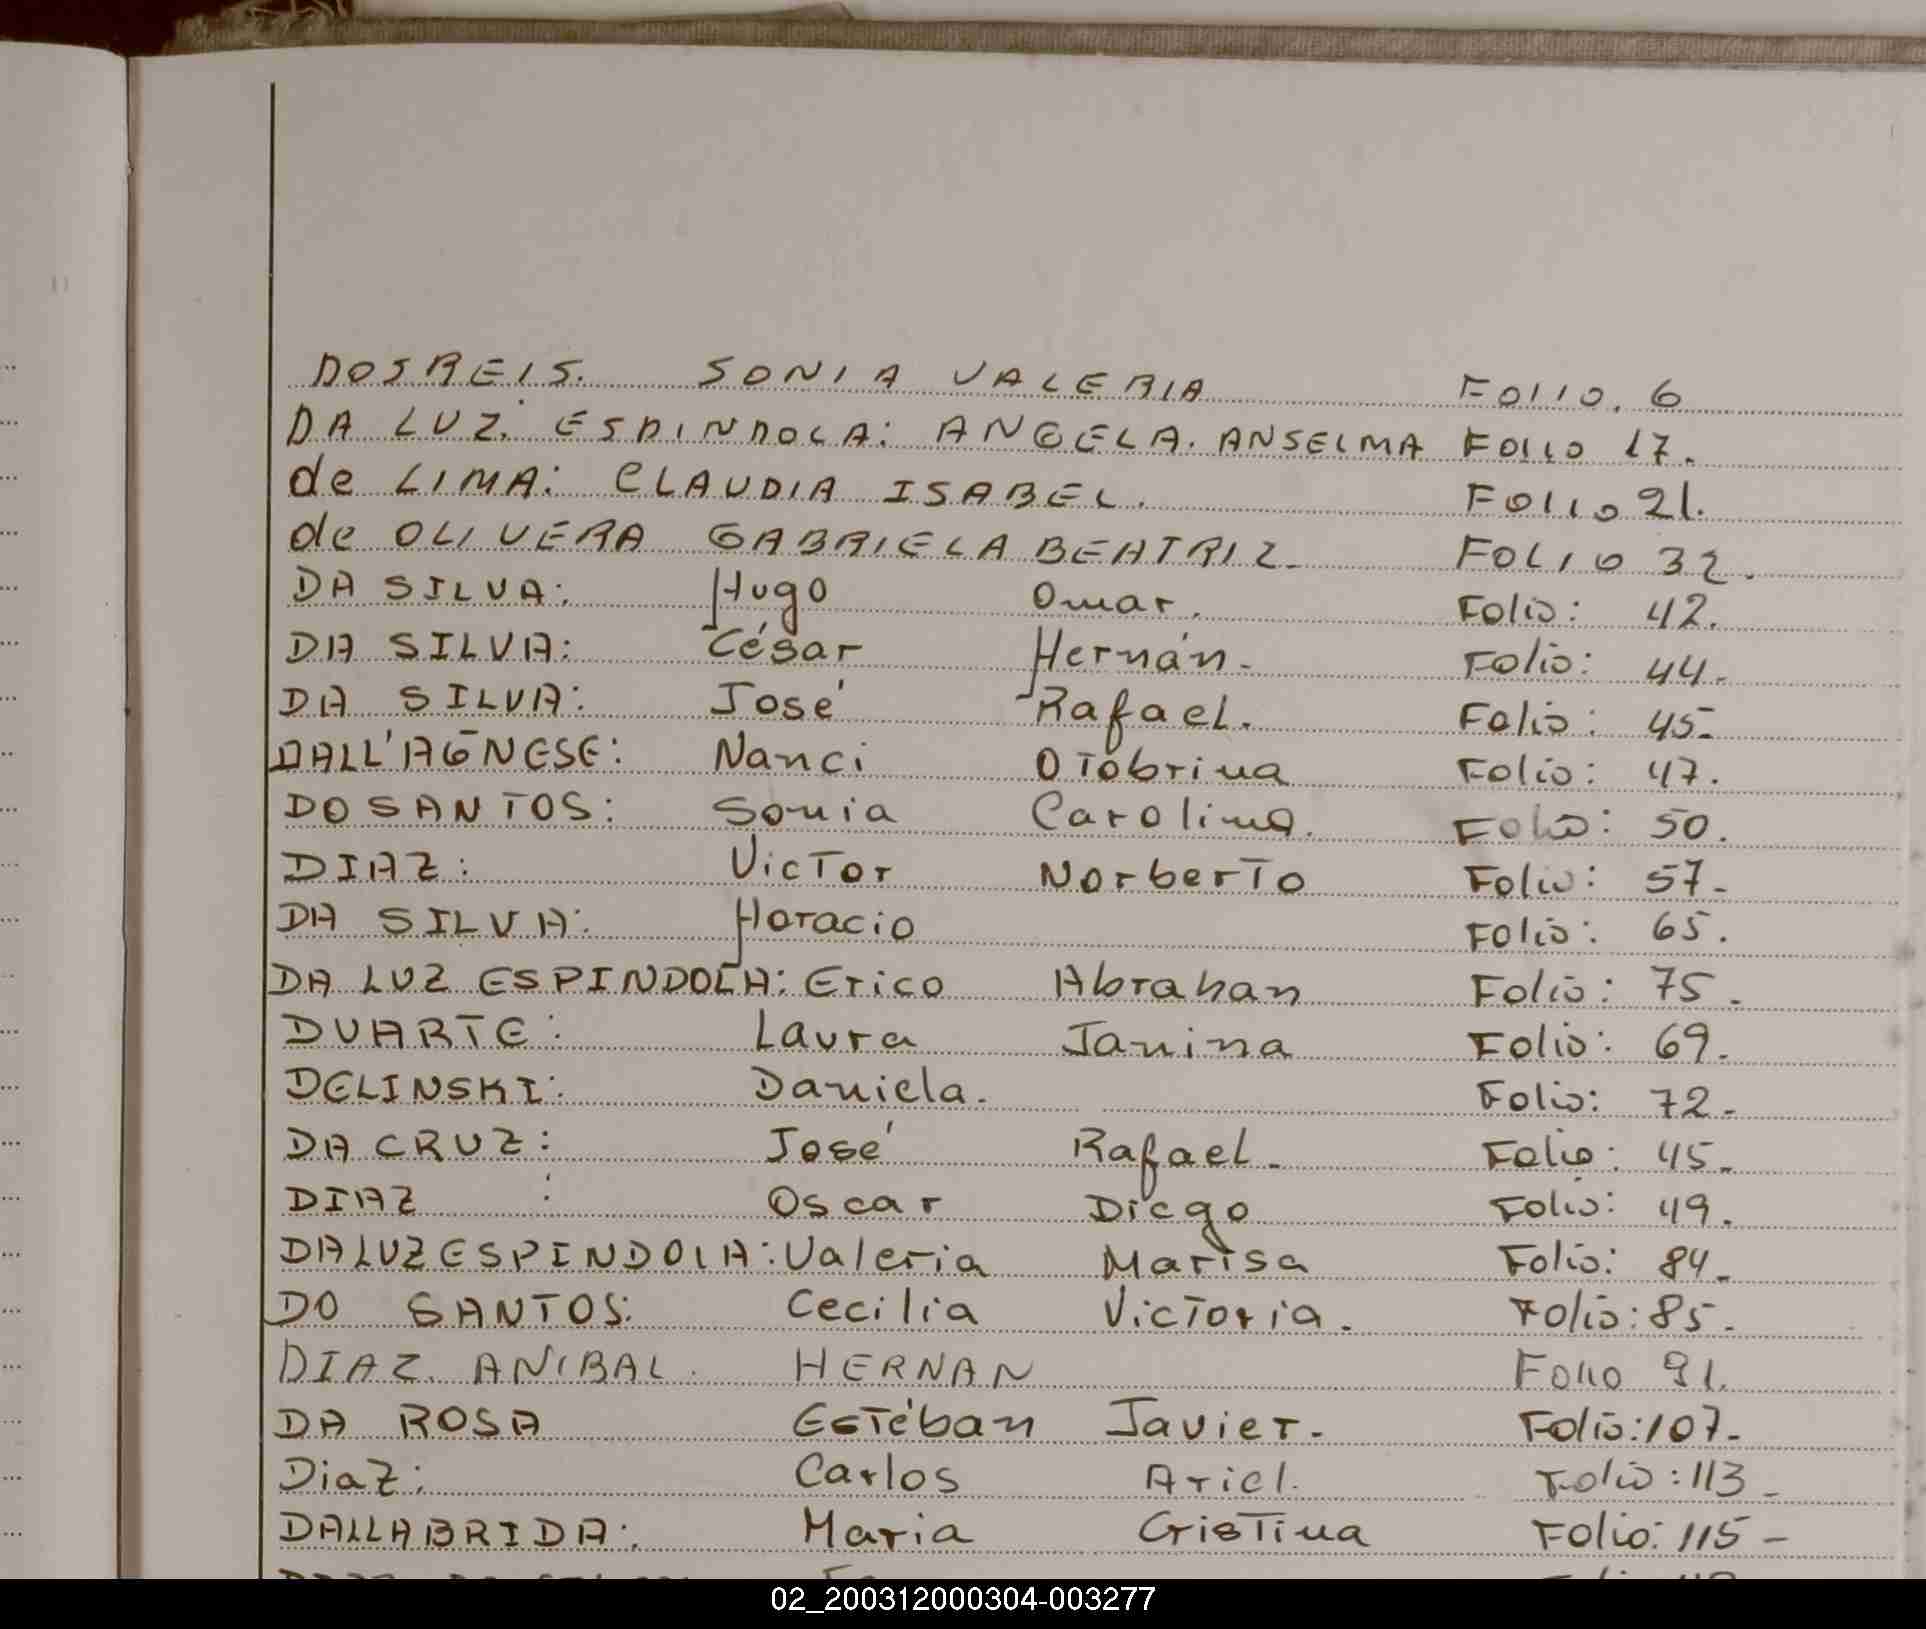 DOSREIS. SONIA VALERIA FOLIO. 6
DA LUZ. ESPINDOLA: ANGELA. ANSELMA FOLIO 17.
de LIMA: CLAUDIA ISABEL. FOLIO 21.
de OLIVERA GABRIELA BEATRIZ. FOLIO 32.
DA SILVA: Hugo Omar. Folio: 42.
DA SILVA: César Hernán. Folio: 44.
DA SILVA: José Rafael. Folio: 45-
DALL'AGNESE: Nanci Otobrina Folio: 47.
DO SANTOS: Sonia Carolina. Folio: 50.
DIAZ: Victor Norberto Folio: 57-
DA SILVA: Horacio Folio: 65.
DA LUZ ESPINDOLA: Erico Abrahan Folio: 75.
DUARTE: Laura Janina Folio: 69.
DELINSKI: Daniela. Folio: 72-
DA CRUZ: José Rafael. Folio: 45-
DIAZ : Oscar Diego Folio: 49.
DA LUZ ESPINDOLA: Valeria Marisa Folio: 84-
DO SANTOS: Cecilia Victoria. Folio: 85-
DIAZ. ANIBAL. HERNAN FOLIO 91.
DA ROSA Estéban Javier. Folio: 107-
DiaZ: Carlos Ariel. Folio: 113-
DALLABRIDA: Maria Cristina Folio: 115-
02_200312000304-003277